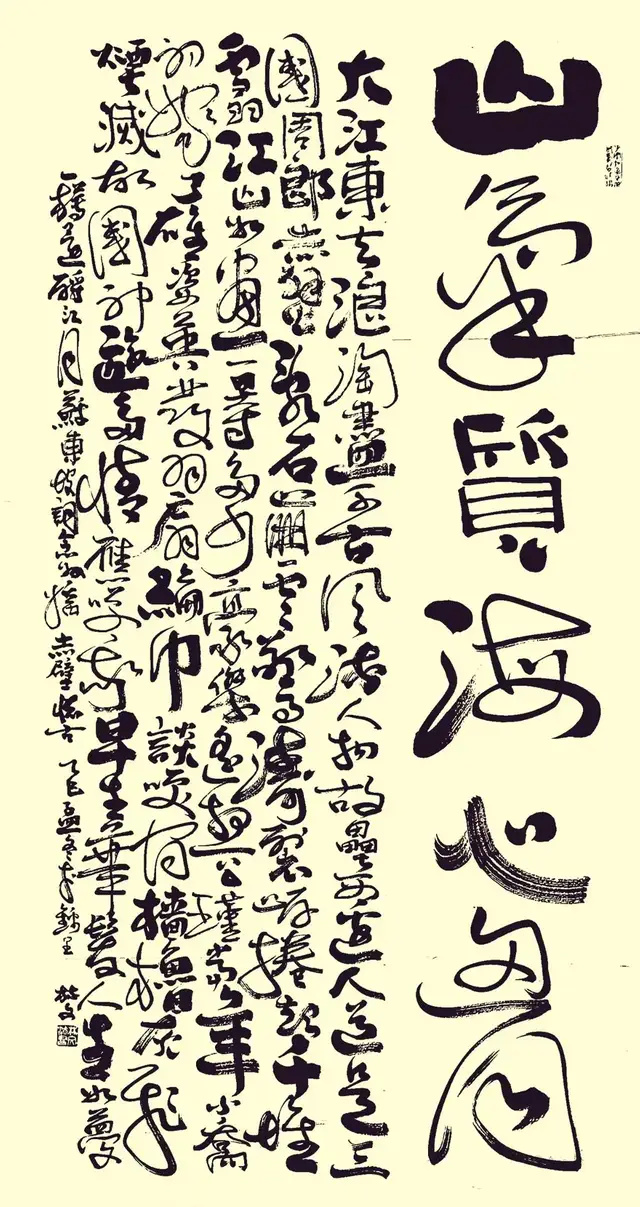 山氣質海心胸
大江東去浪淘盡千古風流人物故壘西邊人道是三
國周郎赤壁亂石崩雲驚濤裂岸捲起千堆
雪江山如畫一時多少豪傑遙想公瑾當年小喬
初嫁了雄姿英發羽扇綸巾談笑間檣櫓灰飛
煙滅故國神遊多情應笑我早生華髮人生如夢
一樽還酹江月蘇東坡詞念奴嬌赤壁懷古 乙巳孟冬於錦里